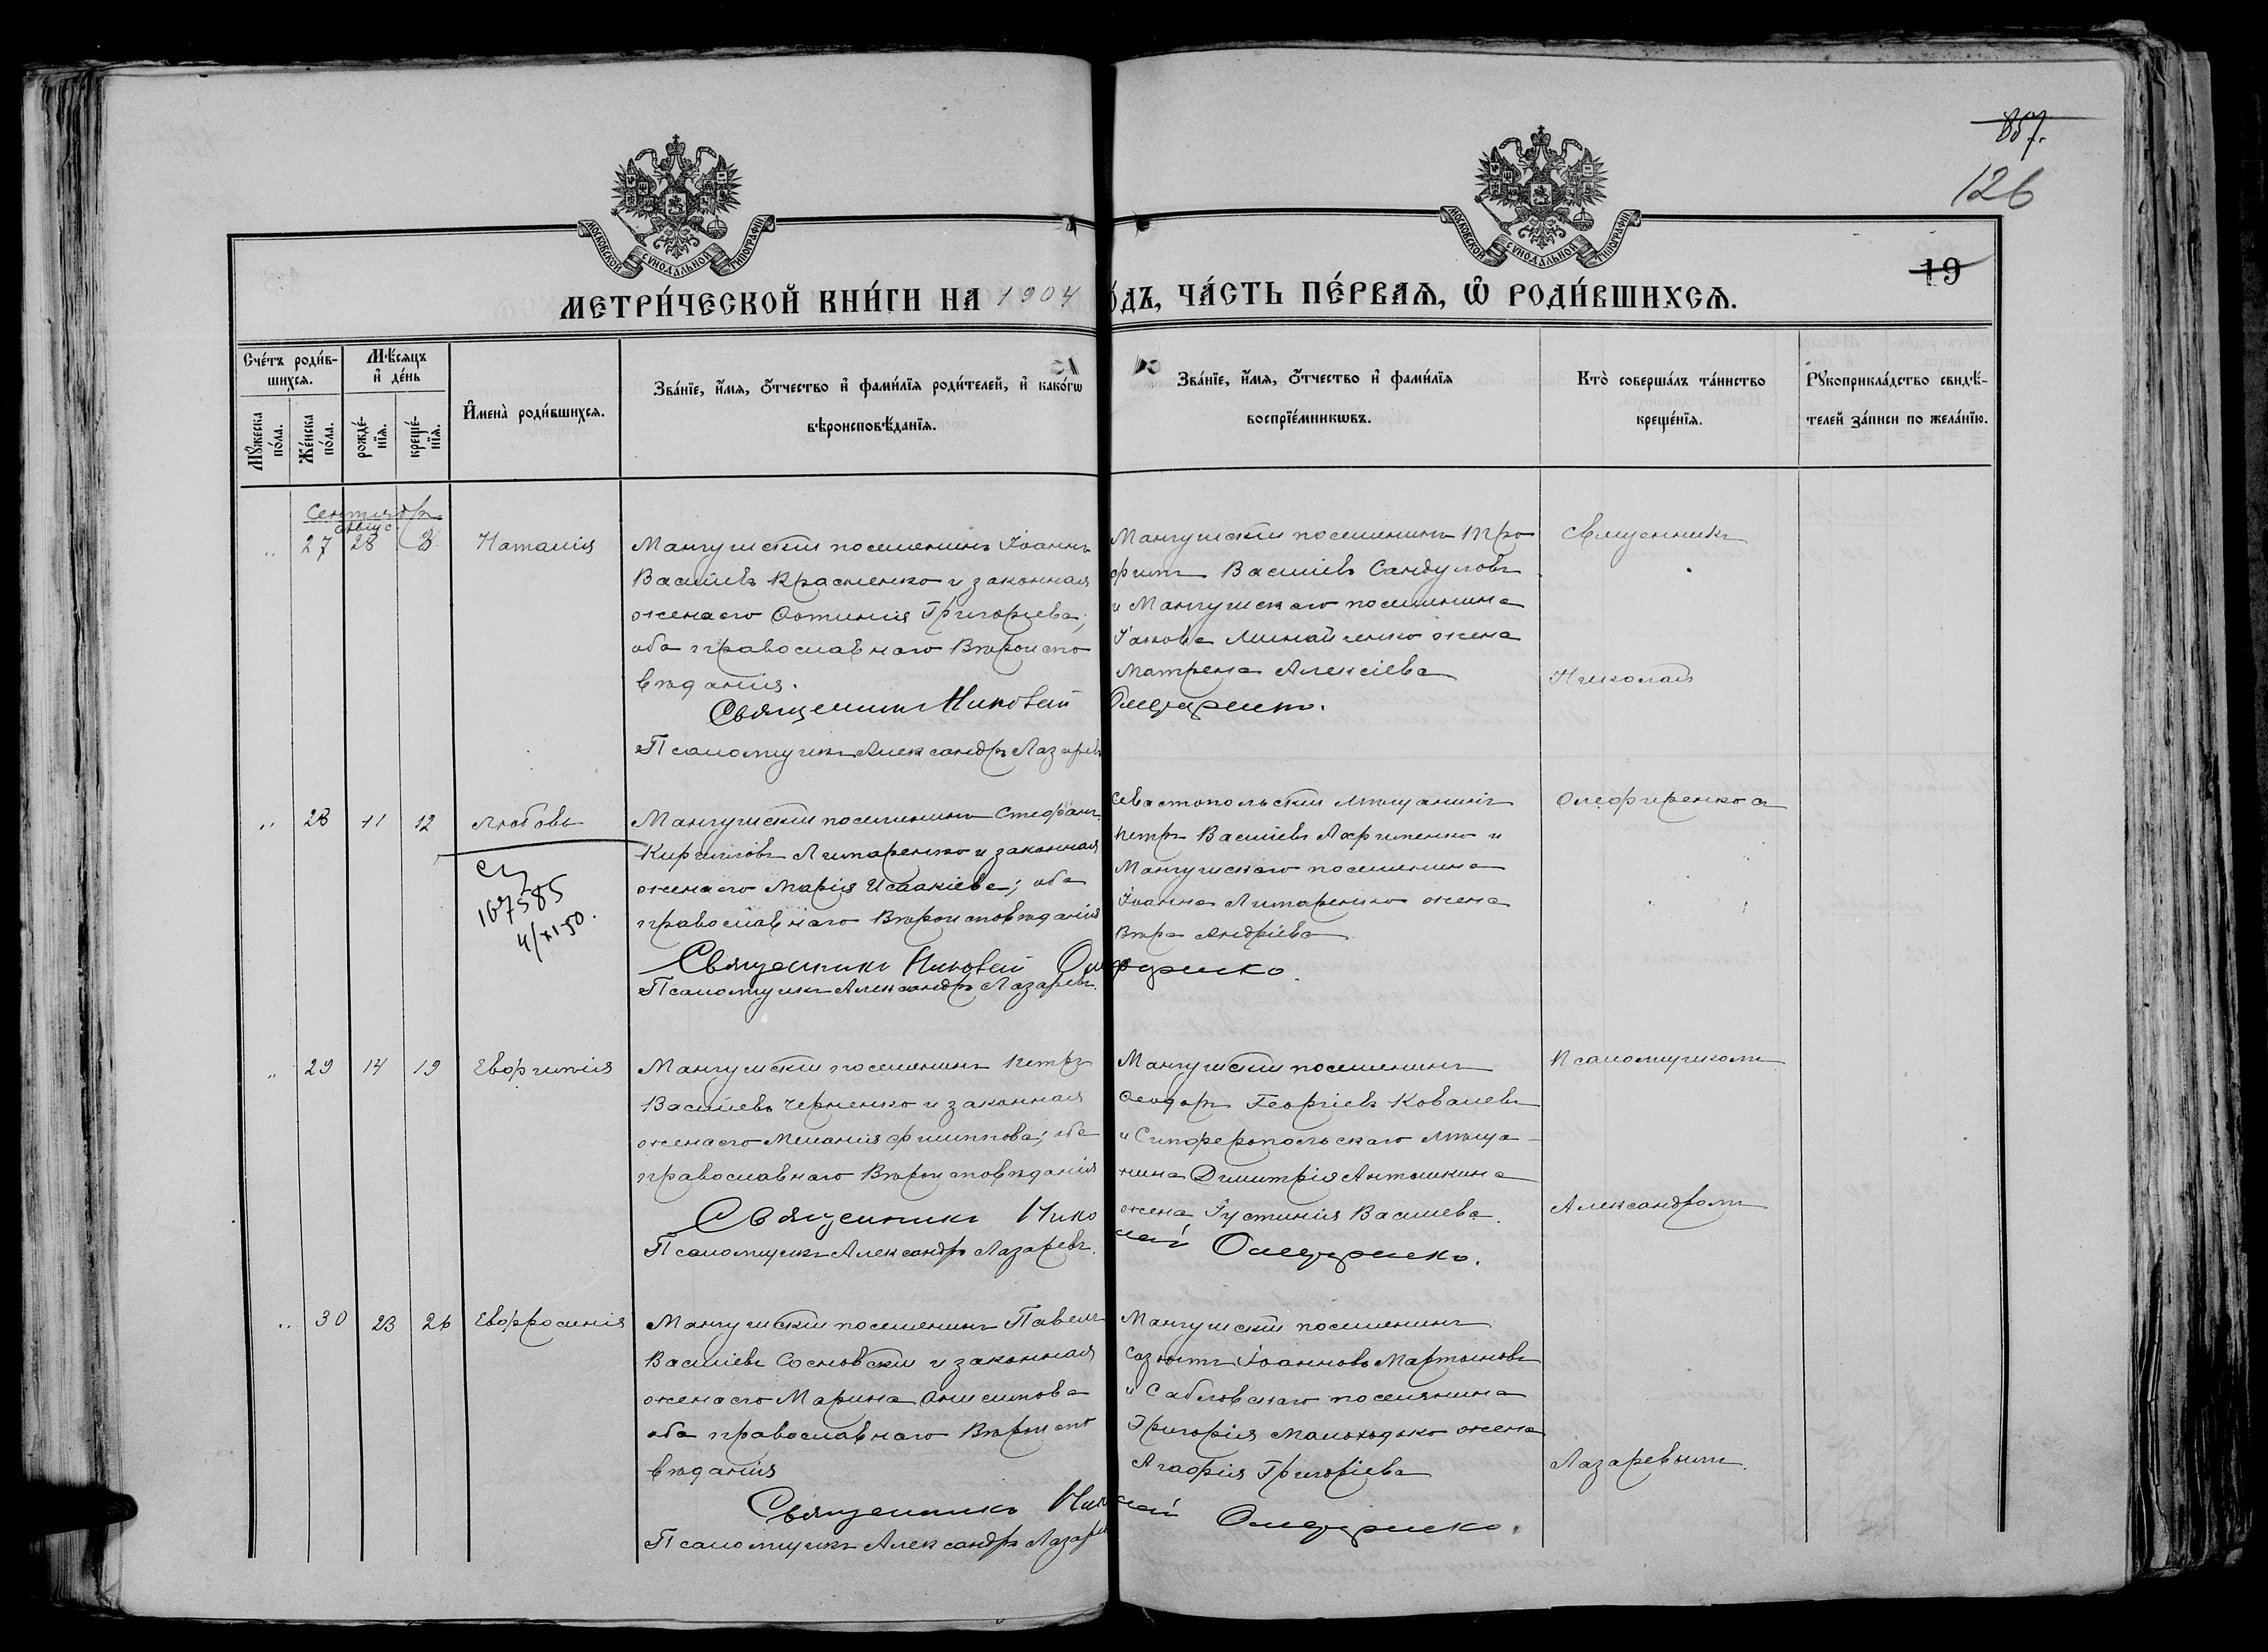 857.
126
МОСКОВСКОЙ СѴНОДАЛЬНОЙ ТИПОГРАФІИ
МОСКОВСКОЙ СѴНОДАЛЬНОЙ ТИПОГРАФІИ
19
МЕТРИ́ЧЕСКОЙ КНИ́ГИ НА 1904
О́ДЪ, ЧА́СТЬ ПЕ́РВАѦ, Ѽ РОДИ́ВШИХСѦ.
Сче́тъ роди́в-
шихсѧ.
Мѣ́сѧцъ
и҆ де́нь
Мꙋ́жеска
по́ла.
Же́нска
по́ла.
рожде́-
нїѧ.
креще́-
нїѧ.
И҆мена̀ роди́вшихсѧ.
Зва́нїе, и҆́мѧ, ѻ҆́тчество и҆ фами́лїѧ роди́телей, и҆ како́гѡ
вѣроисповѣ́данїѧ.
Зва́нїе, и҆́мѧ, ѻ҆́тчество и҆ фами́лїѧ
воспрїе́мникѡвъ.
Кто̀ соверша́лъ та́инство
креще́нїѧ.
Рꙋкоприкла́дство свидѣ́-
телей за́писи по жела́нїю.
Сентябрь
Авгус.
„ 27 28 3 Наталія
Мангушскій поселянинъ Іоаннъ
Васильевъ Красненко и законная
жена его Фотинія Григорьева;
оба православнаго Вѣроиспо
вѣданія.
Священникъ Николай Олефиренко.
Псаломщикъ Александръ Лазаревъ
Мангушскій поселянинъ Тро
фимъ Василіевъ Сандуловъ
и Мангушскаго поселянина
Іакова Минайченко жена
Матрена Алексіева
Священникъ
Николай
„ 28 11 12 Любовь
107585
4/XI-50.
Мангушскій поселянинъ Стефанъ
Кирилловъ Литаренко и законная
жена его Марія Исаакіева; оба
православнаго Вѣроисповѣданія
Священникъ Николай Олефиренко.
Псаломщикъ Александръ Лазаревъ.
Севастопольскій мѣщанинъ
Петръ Василіевъ Ахрименко и
Мангушскаго поселянина
Іоанна Литаренко жена
Вѣра Андріева
Олефиренко съ
„ 29 14 19 Евфимія
Мангушскій поселянинъ Петръ
Васильевъ Черненко и законная
жена его Меланія Филиппова; оба
православнаго Вѣроисповѣданія
Священникъ Николай Олефиренко.
Псаломщикъ Александръ Лазаревъ.
Мангушскій поселянинъ
Ѳеодоръ Георгіевъ Ковалевъ
и Симферопольскаго мѣща-
нина Димитрія Антошкина
жена Іустинія Васильева.
Псаломщикомъ
Александромъ
„ 30 23 26 Евфросинія
Мангушскій поселянинъ Павелъ
Василіевъ Сосновскій и законная
жена его Марина Онисимова
оба православнаго Вѣроиспо
вѣданія
Священникъ Николай Олефиренко.
Псаломщикъ Александръ Лазаревъ
Мангушскій поселянинъ
Созонтъ Іоанновъ Мартыновъ
и Сабловскаго поселянина
Григорія Малоходько жена
Агафія Григоріева
Лазаревымъ.